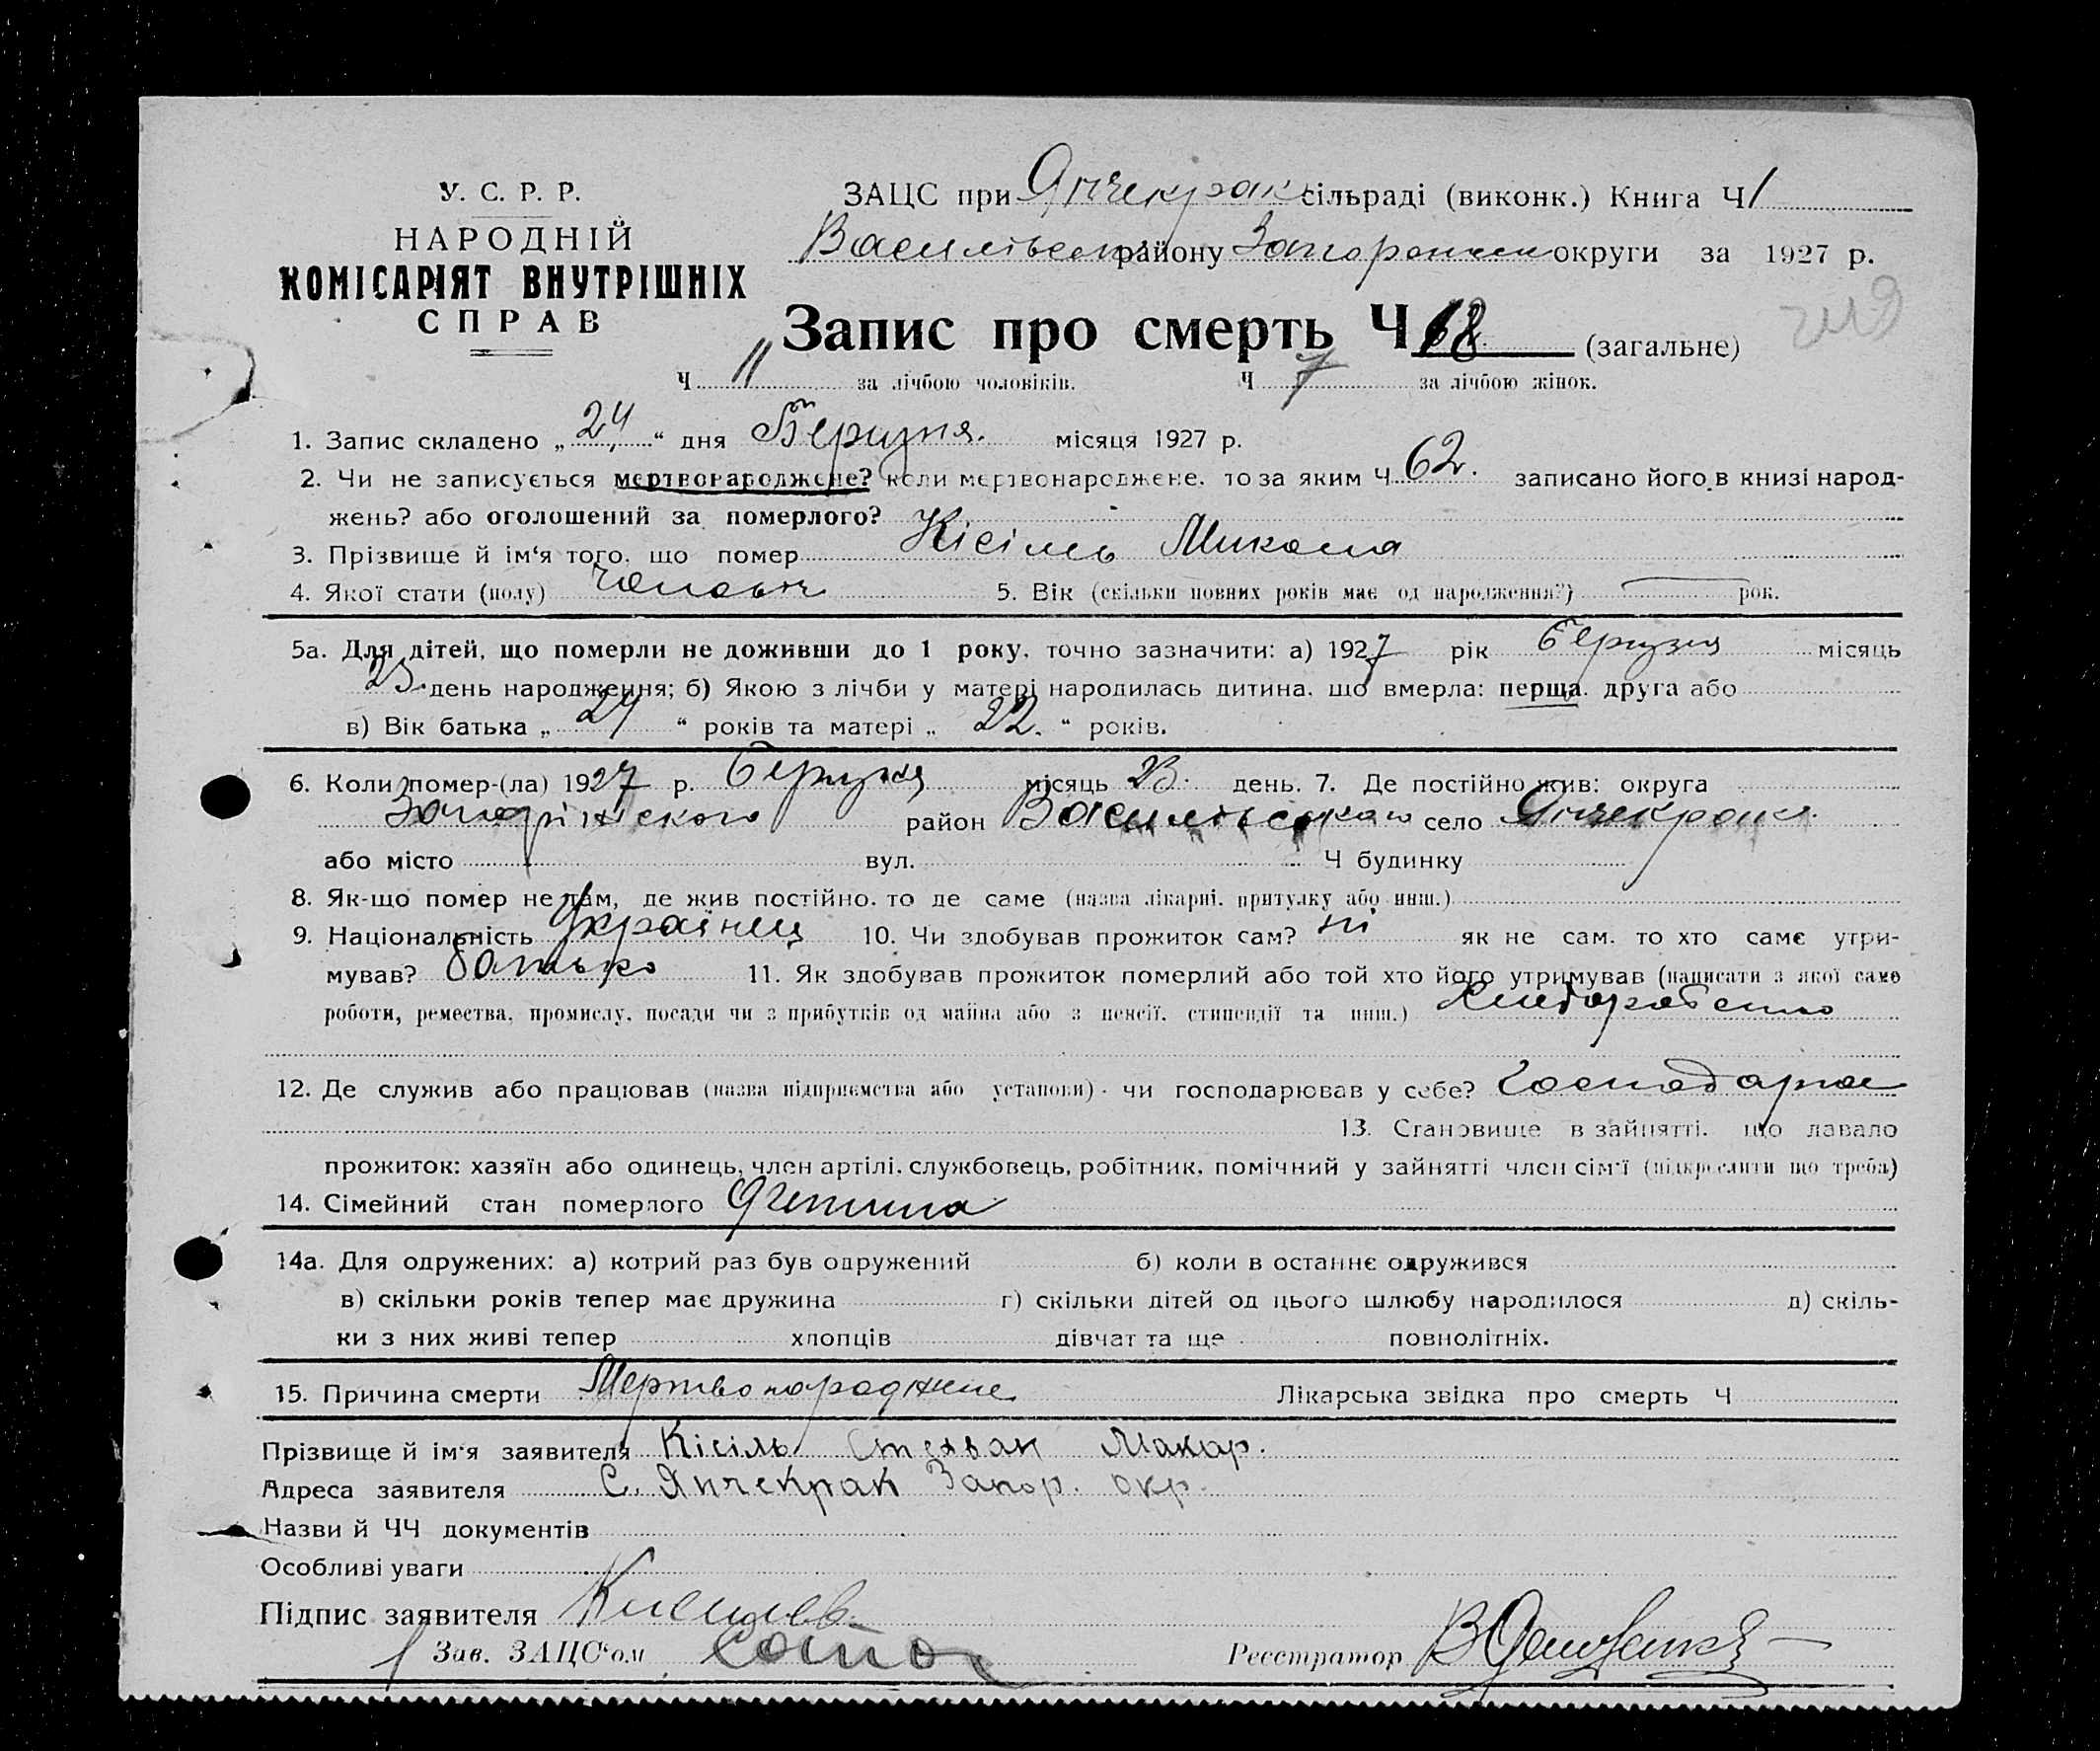 У. С. Р. Р.
НАРОДНІЙ
КОМІСАРІЯТ ВНУТРІШНІХ
СПРАВ
ЗАЦС при Янчекрак сільраді (виконк.) Книга Ч 1
Васильєвськ району Запорожськ округи за 1927 р.
Запис про смерть Ч 18 (загальне)
Ч 11 за лічбою чоловіків. Ч 7 за лічбою жінок.
1. Запис складено „24“ дня Березня. місяця 1927 р.
2. Чи не записується мертвонароджене? коли мертвонароджене, то за яким Ч 62. записано його в книзі народ-
жень? або оголошений за померлого?
3. Прізвище й ім‘я того, що помер Кісіль Микола
4. Якої стати (полу) чоловіч 5. Вік (скільки повних років має од народження?) рок.
5а. Для дітей, що померли не доживши до 1 року, точно зазначити: а) 1927 рік березня місяць
23. день народження; б) Якою з лічби у матері народилась дитина, що вмерла: перша, друга або
в) Вік батька „24“ років та матері „22.“ років.
6. Коли помер-(ла) 1927 р. березня місяць 23. день. 7. Де постійно жив: округа
Запоріжського район Васильєвського село Янчекрак
або місто вул. Ч будинку
8. Як-що помер не там, де жив постійно, то де саме (назва лікарні, притулку або инш.)
9. Національність Українець 10. Чи здобував прожиток сам? ні як не сам, то хто саме утри-
мував? батько 11. Як здобував прожиток померлий або той хто його утримував (написати з якої саме
роботи, ремества, промислу, посади чи з прибутків од майна або з пенсії, стипендії та инш.)
12. Де служив або працював (назва підприємства або установи) - чи господарював у себе?
13. Становище в зайнятті, що давало
прожиток: хазяїн або одинець, член артілі, службовець, робітник, помічний у зайнятті член сім‘ї (підкреслити що треба)
14. Сімейний стан померлого Дитина
14а. Для одружених: а) котрий раз був одружений б) коли в останнє одружився
в) скільки років тепер має дружина г) скільки дітей од цього шлюбу народилося д) скіль-
ки з них живі тепер хлопців дівчат та ще повнолітніх.
15. Причина смерти Мертвонароджене Лікарська звідка про смерть Ч
Прізвище й ім‘я заявителя Кісіль Степан Макар.
Адреса заявителя С. Янчекрак Запор. окр.
Назви й ЧЧ документів
Особливі уваги
Підпис заявителя
Зав. ЗАЦС‘ом Реєстратор